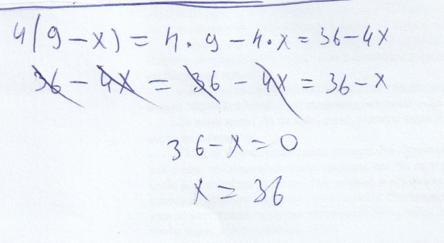 4(9-x) = 4·9-4·x = 36-4x
36-4x = 36-4x = 36-x
36-x=0
x=36